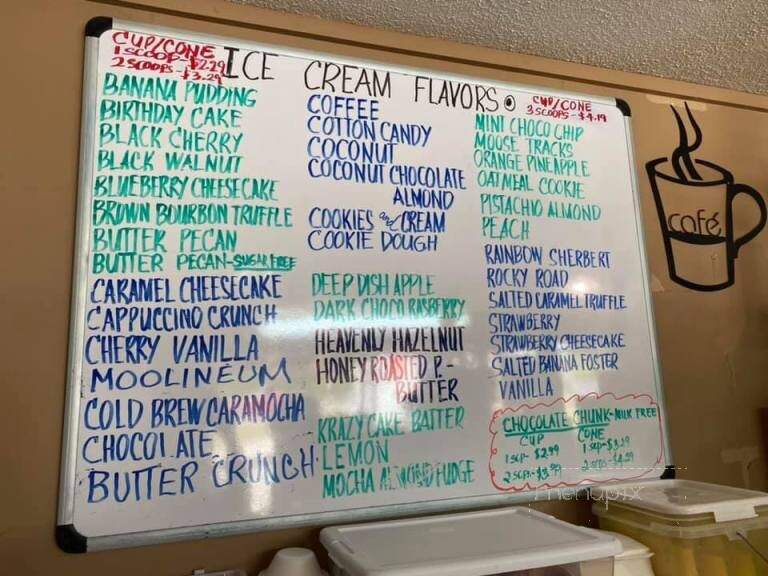 CUP/CONE
1 SCOOP-$2.29
2 SCOOPS-$3.29
ICE CREAM FLAVORS
CUP/CONE
3 SCOOPS-$4.19
BANANA PUDDING
BIRTHDAY CAKE
BLACK CHERRY
BLACK WALNUT
BLUEBERRY CHEESECAKE
BROWN BOURBON TRUFFLE
BUTTER PECAN
BUTTER PECAN-SUGAR FREE
CARAMEL CHEESECAKE
CAPPUCCINO CRUNCH
CHERRY VANILLA
MOOLINEUM
COLD BREW CARAMOCHA
CHOCOLATE
BUTTER CRUNCH
COFFEE
COTTON CANDY
COCONUT
COCONUT CHOCOLATE
ALMOND
COOKIES and CREAM
COOKIE DOUGH
DEEP DISH APPLE
DARK CHOCO RASBERRY
HEAVENLY HAZELNUT
HONEY ROASTED P-
BUTTER
KRAZY CAKE BATTER
LEMON
MOCHA ALMOND FUDGE
MINI CHOCO CHIP
MOOSE TRACKS
ORANGE PINEAPPLE
OATMEAL COOKIE
PISTACHIO ALMOND
PEACH
RAINBOW SHERBERT
ROCKY ROAD
SALTED CARAMEL TRUFFLE
STRAWBERRY
STRAWBERRY CHEESECAKE
SALTED BANANA FOSTER
VANILLA
CHOCOLATE CHUNK-MILK FREE
CUP CONE
1 SCP-$2.99 1 SCP-$3.29
2 SCPS-$3.99
café
menupix